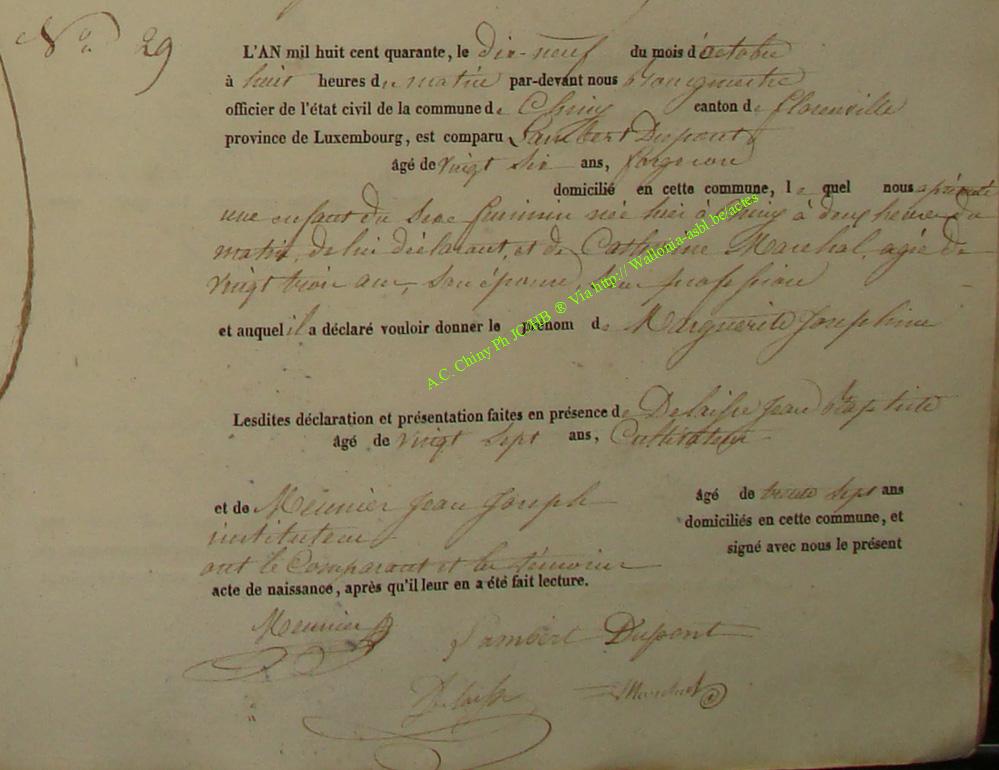 No 29
L'AN mil huit cent quarante, le dix-neuf du mois d'octobre
à huit heures du matin par-devant nous Bourgmestre
officier de l'état civil de la commune de Chiny canton de florenville
province de Luxembourg, est comparu Lambert Dupont
âgé de vingt six ans, forgeron
domicilié en cette commune, le quel nous a présenté
une enfant du sexe feminin née hier à Chiny à douze heures du
matin, de lui déclarant, et de Catherine Marchal, agée de
vingt trois ans, son épouse, sans profession
et auquel il a déclaré vouloir donner le prénom de Marguerite Josephine
A.C. Chiny Ph JCHHB ® Via http:// Wallonia-asbl.be/actes
Lesdites déclaration et présentation faites en présence de Delaisse Jean Baptiste
âgé de vingt sept ans, Cultivateur
et de Meunier Jean Joseph âgé de trente sept ans
instituteur domiciliés en cette commune, et
ont le Comparant et les témoins signé avec nous le présent
acte de naissance, après qu'il leur en a été fait lecture.
Meunier Lambert Dupont
Delaisse Marchal